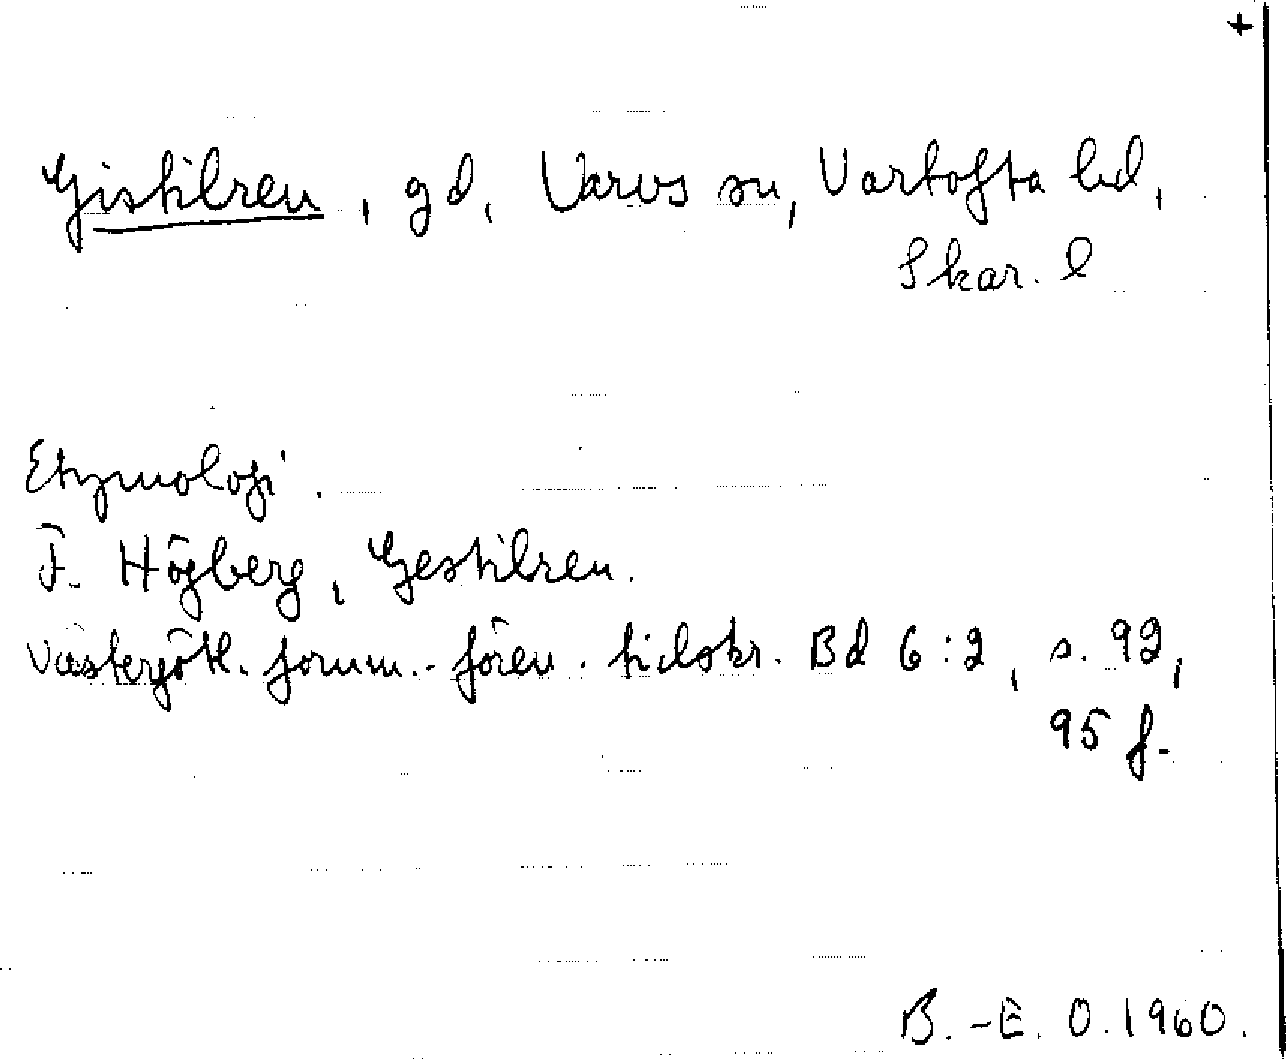 +
Gistilren, gd, Varvs sn, Vartofta hd,
Skar. l
Etymologi.
F. Högberg, Gestilren.
Västergötl. fornm.-fören. tidskr. Bd 6:2, s. 92,
95 f.
B.-E. O. 1960.